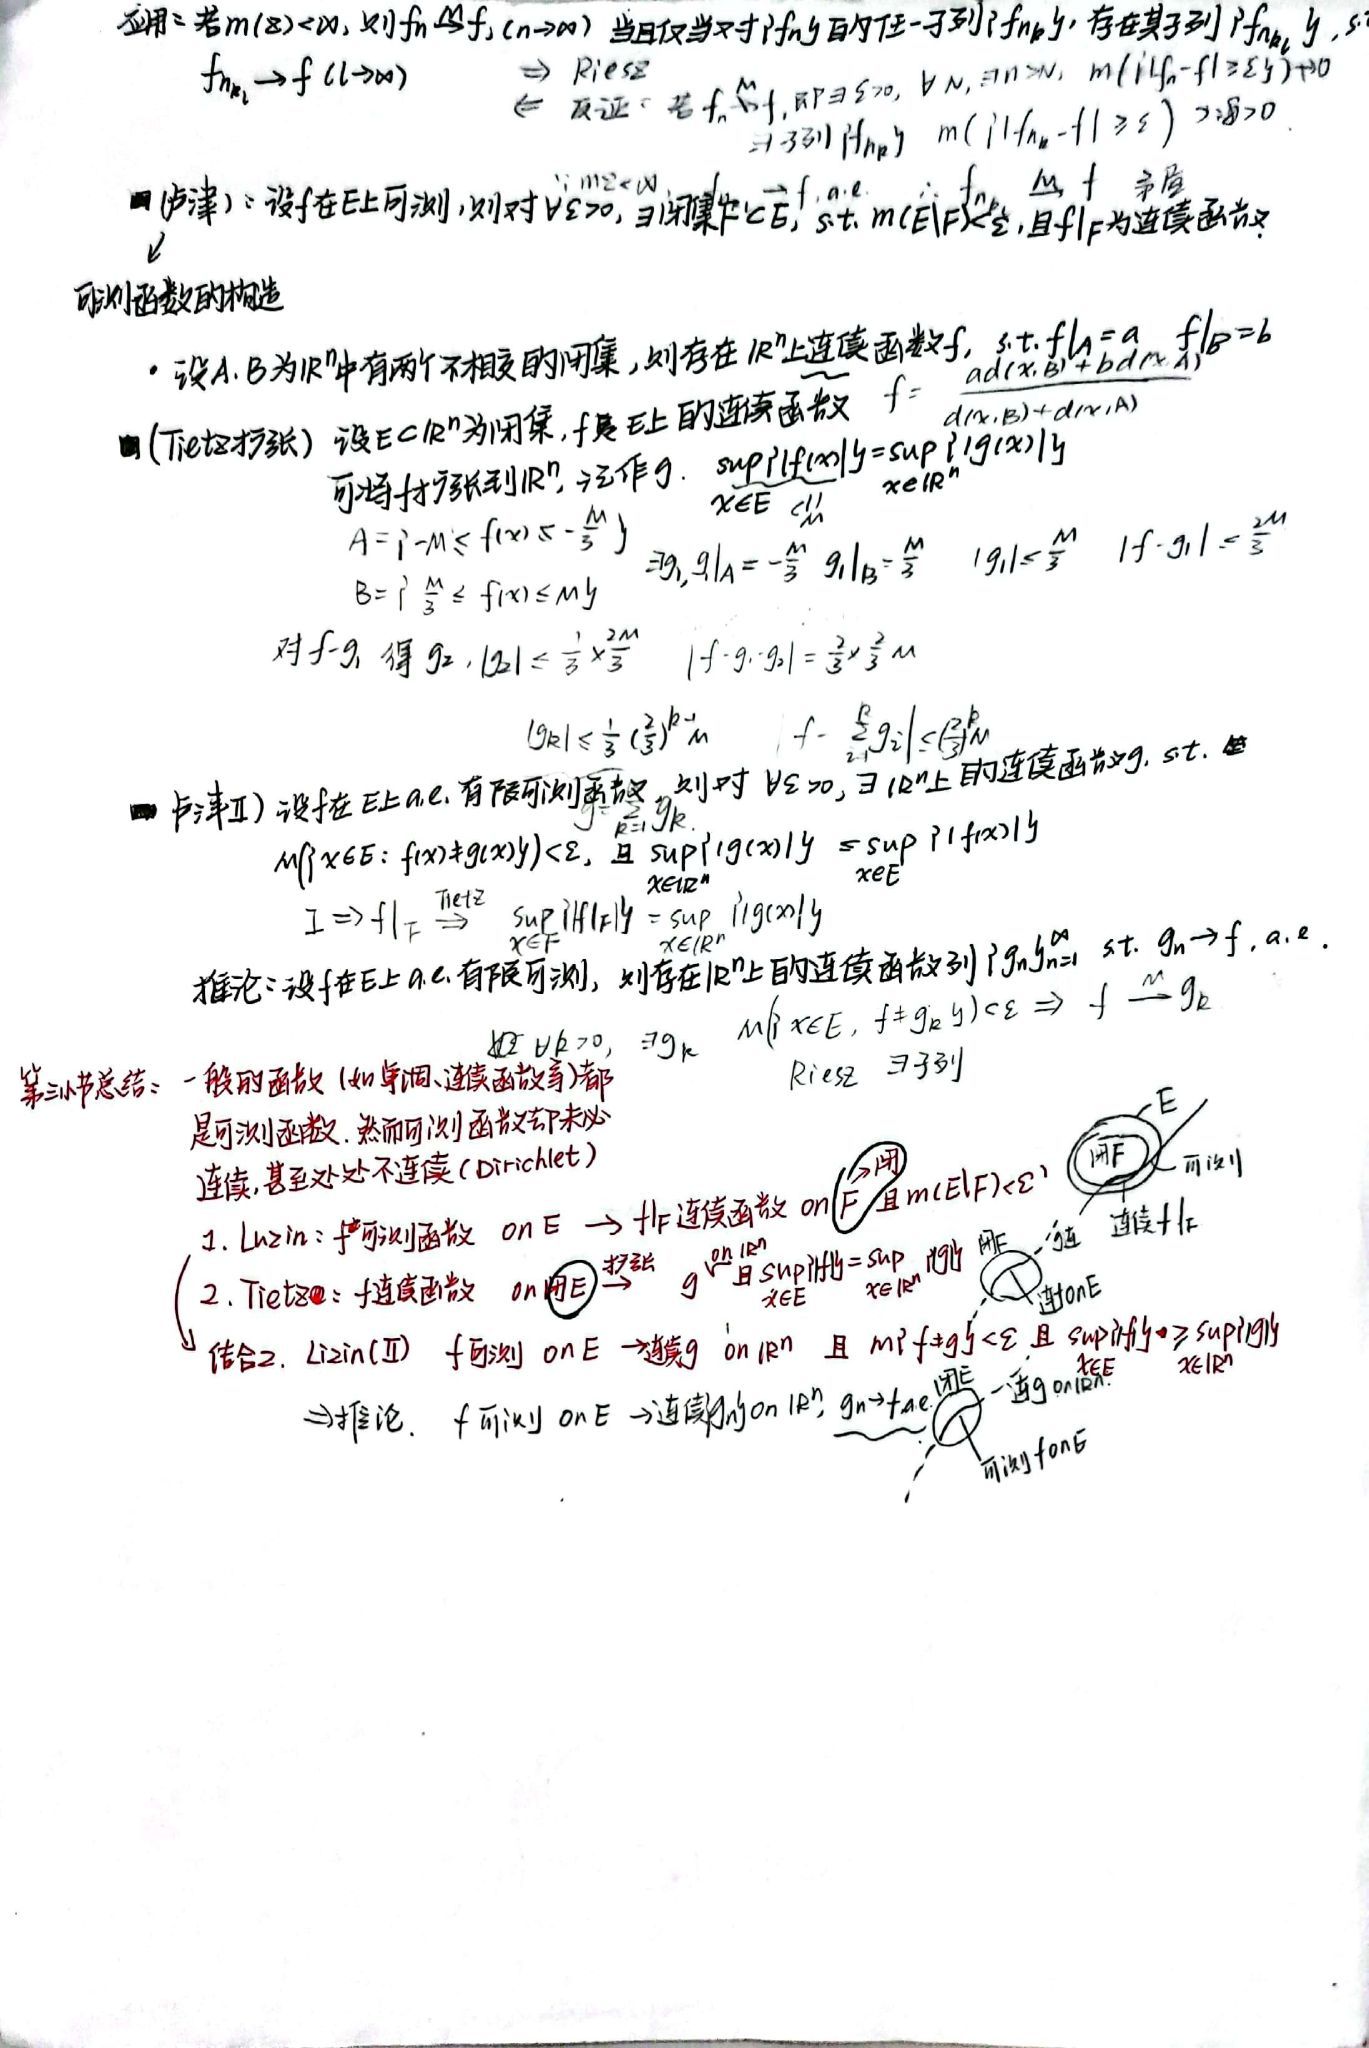 应用：若m(E)<∞, 则 fn →m f, (n→∞) 当且仅当对{fn}的任一子列{fnk}, 存在其子列{fnkl}, s.t
fnkl → f (l→∞) ⇒ Riesz
⇐ 反证：若 fn ↛m f, 即∃ε>0, ∀N, ∃n>N, m({|fn-f|≥ε}) ↛ 0
∃子列{fnk} m({|fnk-f|≥ε}) >δ>0
∵ mE<∞ → f, a.e. ∴ fnk →m f 矛盾
(卢津)：设f在E上可测, 则对∀ε>0, ∃闭集F⊂E, s.t. m(E\F)<ε, 且f|F为连续函数.
可测函数的构造
· 设A.B为ℝⁿ中有两个不相交的闭集, 则存在ℝⁿ上连续函数f, s.t. f|A=a f|B=b
f = (ad(x,B)+bd(x,A))/(d(x,B)+d(x,A))
(Tietz扩张) 设E⊂ℝⁿ为闭集, f是E上的连续函数
可将f扩张到ℝⁿ, 记作g. sup x∈E {|f(x)|} = sup x∈ℝⁿ {|g(x)|}
A={-M≤f(x)≤-M/3}
B={M/3≤f(x)≤M} ∃g₁, g₁|A=-M/3 g₁|B=M/3 |g₁|≤M/3 |f-g₁|≤2M/3
对f-g₁ 得 g₂, |g₂|≤1/3×2M/3 |f-g₁-g₂|=2/3×2/3M
|gk|≤1/3(2/3)^(k-1)M |f-Σ(i=1→k) gi|≤(2/3)^k M
g=Σ k=1 gk.
卢津Ⅱ) 设f在E上a.e.有限可测函数, 则对∀ε>0, ∃ℝⁿ上的连续函数g, s.t.
m({x∈E: f(x)≠g(x)})<ε, 且 sup x∈ℝⁿ {|g(x)|} ≤ sup x∈E {|f(x)|}
I ⇒ f|F Tietz⇒ sup x∈F {|f|F|} = sup x∈ℝⁿ {|g(x)|}
推论：设f在E上a.e.有限可测, 则存在ℝⁿ上的连续函数列{gn}∞n=1 s.t. gn→f, a.e.
∀k>0, ∃gk m({x∈E, f≠gk})<ε ⇒ f →m gk
Riesz ∃子列
第三小节总结：一般的函数(如单调、连续函数等)都
是可测函数. 然而可测函数却未必
连续, 甚至处处不连续(Dirichlet)
E
闭F
可测
连续f|F
1. Luzin：f可测函数 on E → f|F连续函数 on F→闭 且m(E\F)<ε
2. Tietz：f连续函数 on 闭E 扩张→ g on ℝⁿ 且 sup x∈E {|f|} = sup x∈ℝⁿ {|g|}
闭E
g连
连f on E
结合2. Lizin(Ⅱ) f可测 on E → 连续g on ℝⁿ 且 m{f≠g}<ε 且 sup x∈E {|f|} ≥ sup x∈ℝⁿ {|g|}
⇒推论. f可测 on E → 连续{gn} on ℝⁿ, gn→f a.e.
闭E
连g on ℝⁿ.
可测f on E